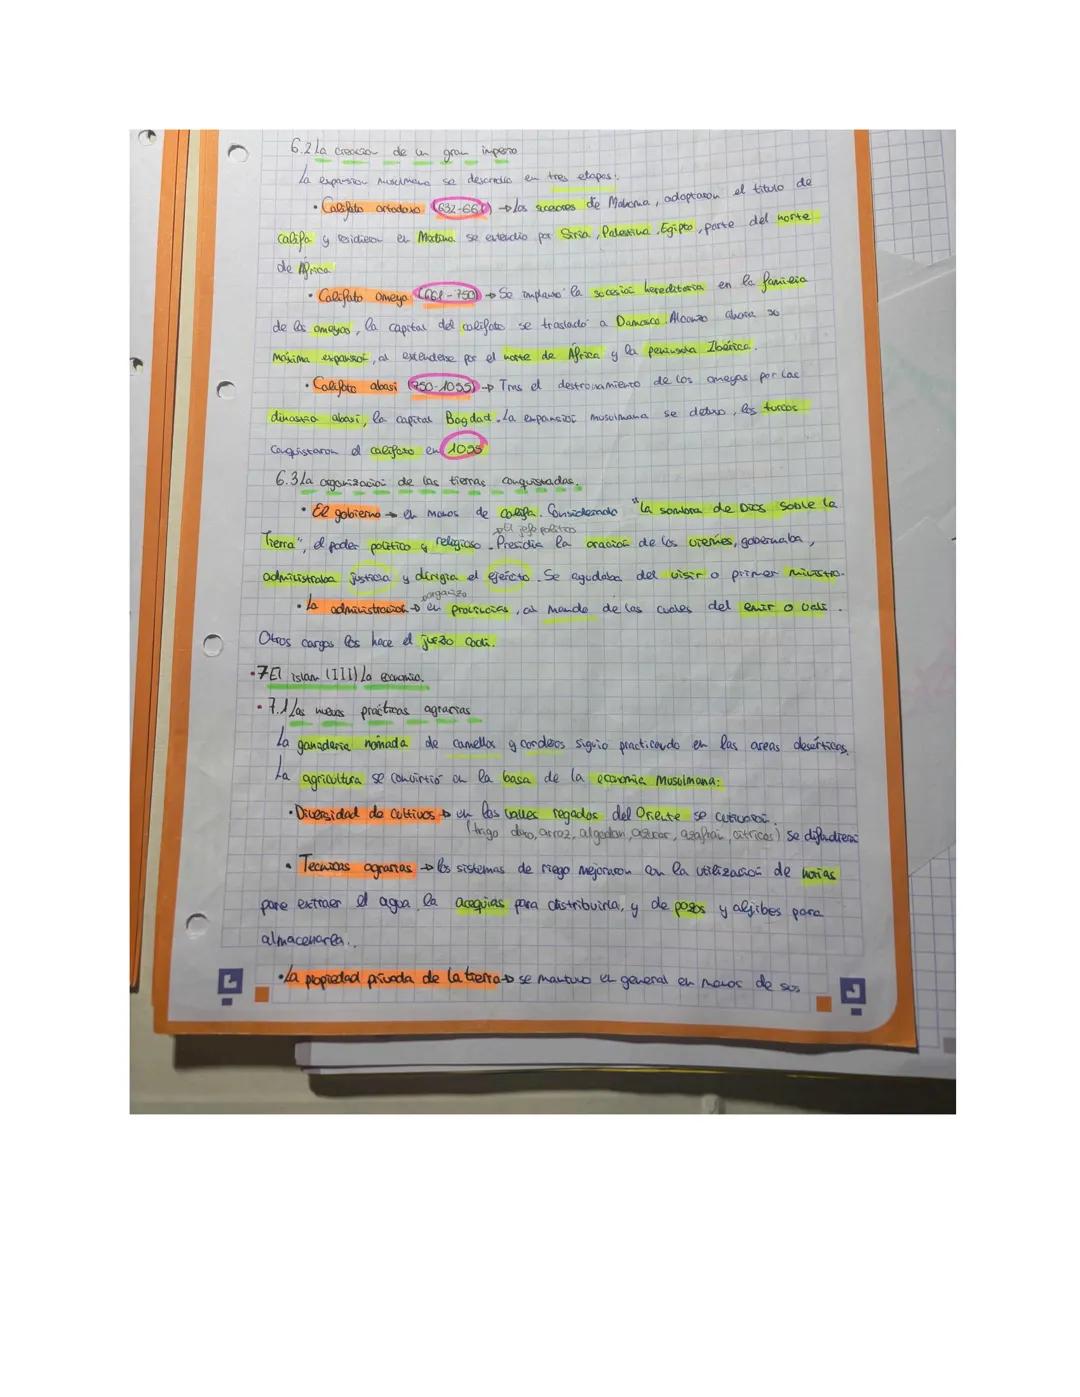 6.2 La creacion de un gran imperio
La expansion musulmana se desarrollo en tres etapas:
• Califato ortodoxo (632-661) → Los sucesores de Mahoma, adoptaron el titulo de
califa y residieron en Medina se extendio por Siria, Palestina, Egipto, parte del norte
de África
• Califato omeya (661-750) → Se implanto la sucesion hereditaria en la familia
de los omeyas, la capital del califato se traslado a Damasco. Alcanzo ahora su
maxima expansion, al extenderse por el norte de África y la peninsula Ibérica.
• Califato abasi (750-1055) → Tras el destronamiento de los omeyas por las
dinastia abasi, la capital Bagdad. La expansion musulmana se detuvo, los turcos
conquistaron el califato en 1055
6.3 La organizacion de las tierras conquistadas.
• El gobierno → en manos de califa. Considerado "la sombra de Dios sobre la
→ El jefe politico
Tierra", el poder politico y religioso. Presidia la oracion de los viernes, gobernaba,
administraba justicia y dirigia el ejercito. Se ayudaba del visir o primer ministro.
organizo
• La administracion → en provincias, al mando de las cuales del emir o vali.
Otros cargos los hace el juez o cadi.
• 7 El islam (III) La economia.
• 7.1 Las nuevas practicas agrarias
La ganaderia nomada de camellos y corderos siguio practicando en las areas deserticas.
La agricultura se convirtió en la basa de la economia Musulmana:
• Diversidad de cultivos → en los valles regados del Oriente se cultivaron.
(trigo duro, arroz, algodon, azucar, azafran, citricos) se difundieron
• Tecnicas agrarias → los sistemas de riego mejoraron con la utilizacion de norias
para extraer el agua, la acequias para distribuirla, y de pozos y aljibes para
almacenarla..
• La propiedad privada de la tierra → se mantuvo en general en manos de sus